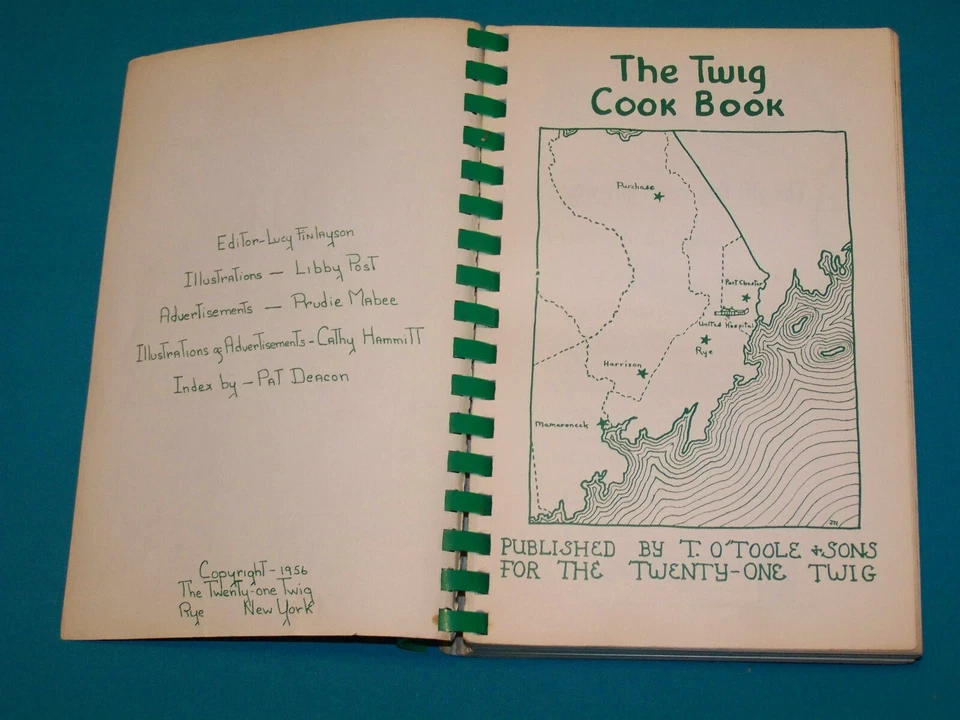 Editor-Lucy Finlayson
Illustrations - Libby Post
Advertisements - Prudie Mabee
Illustrations & Advertisements - Cathy Hammitt
Index by - Pat Deacon
Copyright - 1956
The Twenty-one Twig
Rye New York
The Twig
Cook Book
Purchase
Port Chester
United Hospital
Rye
Harrison
Mamaroneck
PUBLISHED BY T. O'TOOLE & SONS
FOR THE TWENTY-ONE TWIG